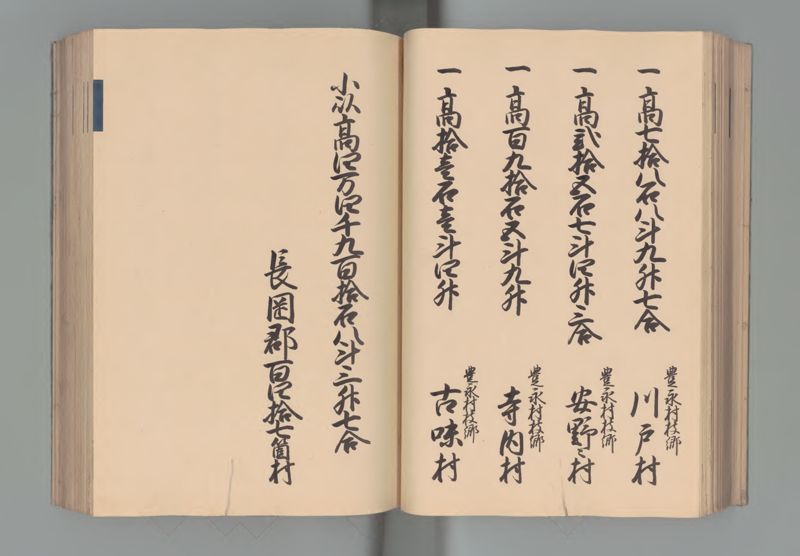 一高七拾八石八斗九升七合
豊永村枝郷
川戸村
一高弐拾五石七斗四升三合
豊永村枝郷
安野々村
一高百九拾石五斗九升
豊永村枝郷
寺内村
一高拾壱石壱斗四升
豊永村枝郷
古味村
小以高四万四千九百拾石八斗三升七合
長岡郡百四拾七箇村